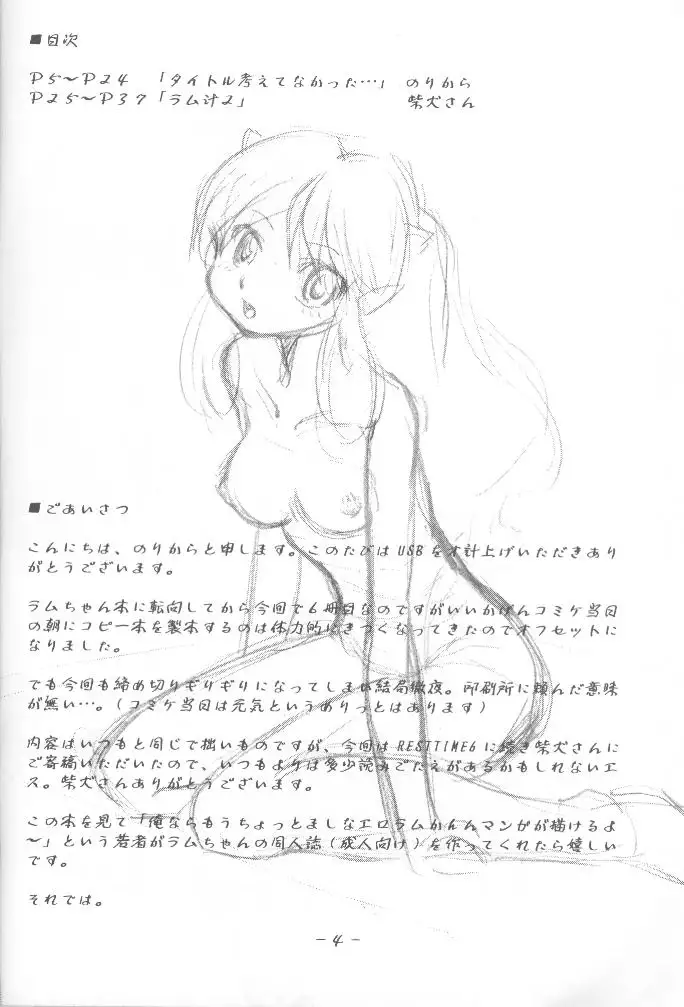 ■目次
P5～P24 「タイトル考えてなかった…」 のりから
P25～P37「ラム汁2」 柴犬さん
■ごあいさつ
こんにちは、のりからと申します。このたびはUSBをオ計上げいただきあり
がとうございます。
ラムちゃん本に転向してから今回で6冊目なのですがいいかげんコミケ当日
の朝にコピー本を製本するのは体力的にきつくなってきたのでオフセットに
なりました。
でも今回も締め切りぎりぎりになってしまい結局徹夜。印刷所に頼んだ意味
が無い…。(コミケ当日は元気というありっとはあります)
内容はいつもと同じで拙いものですが、今回はRESTTIME6に続き柴犬さんに
ご寄稿いただいたので、いつもよりは多少読みごたえがあるかもしれないエ
ス。柴犬さんありがとうございます。
この本を見て「俺ならもうちょっとましなエロラムかんんマンガが描けるよ
～」という若者がラムちゃんの同人誌(成人向け)を作ってくれたら嬉しい
です。
それでは。
－4－